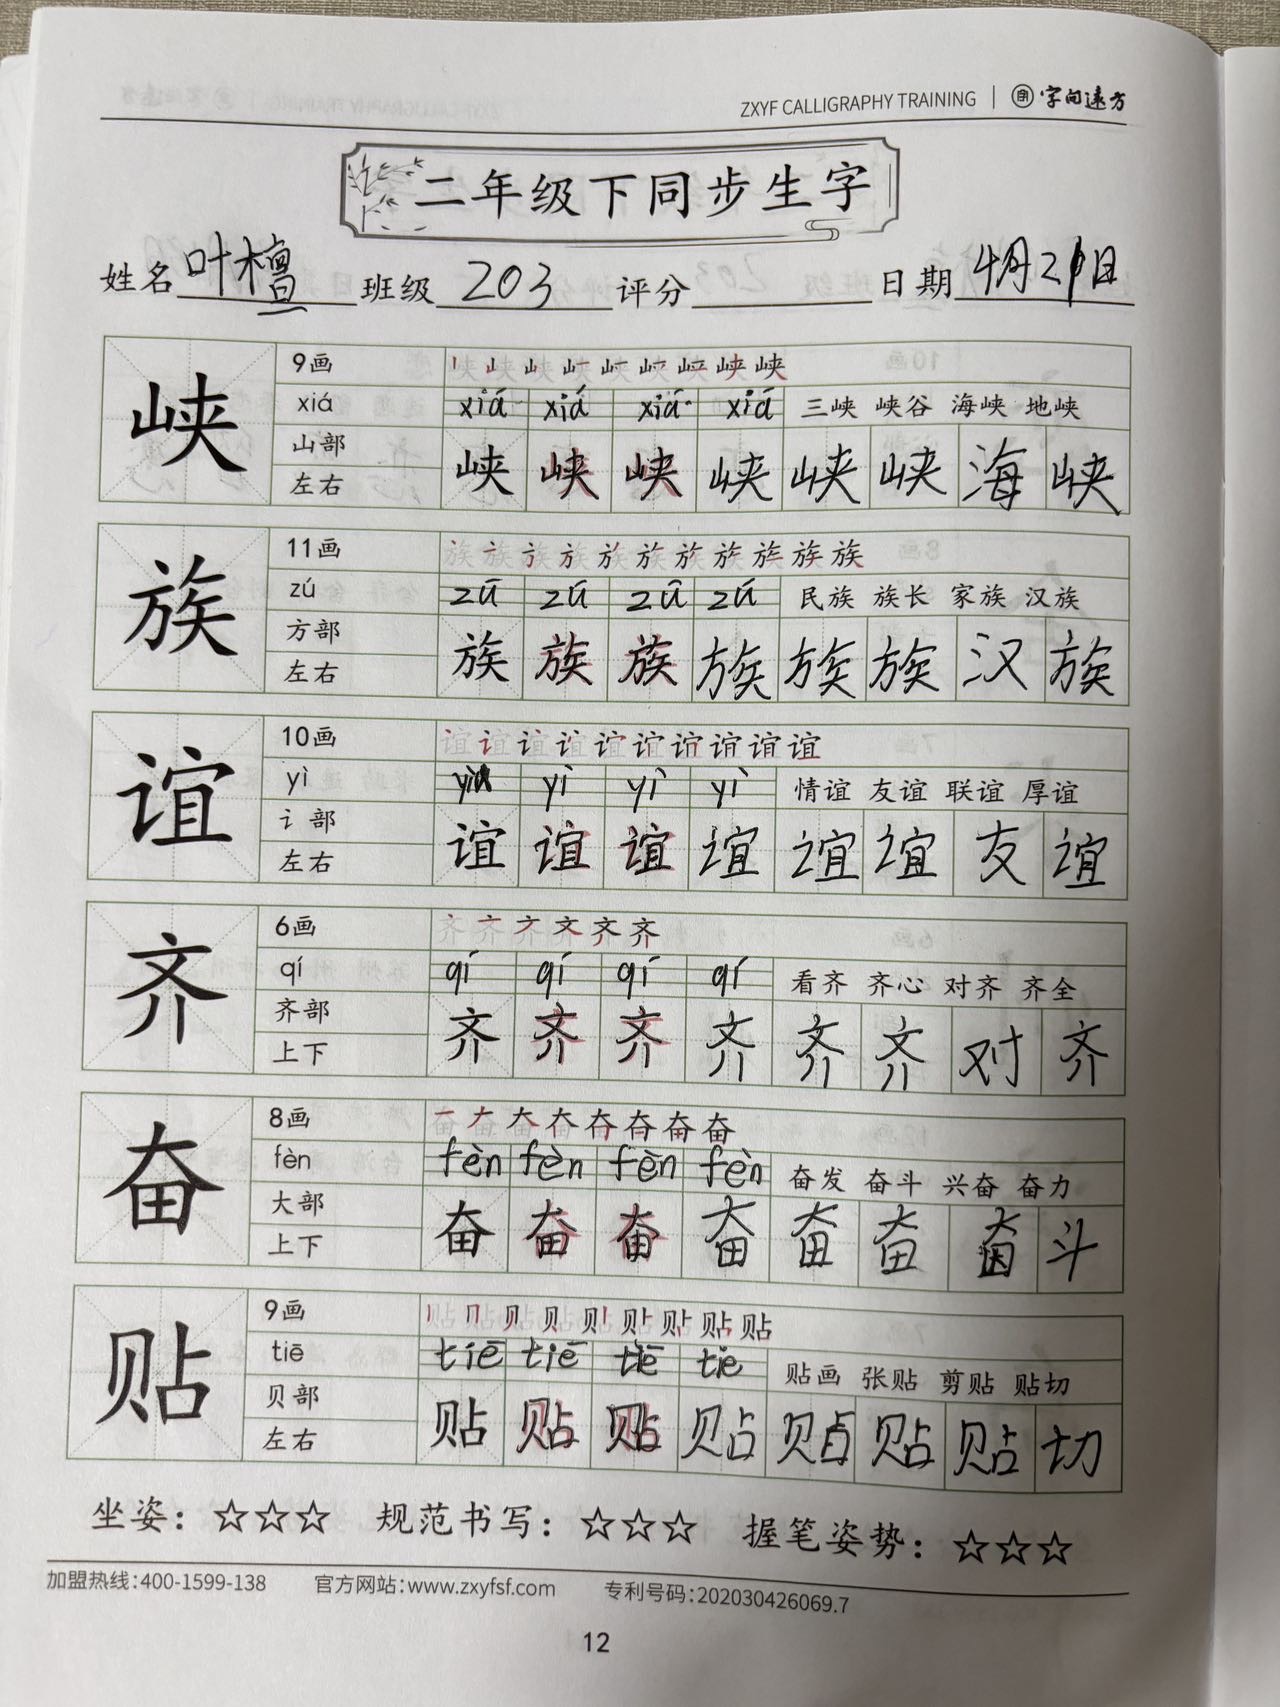 ZXYF CALLIGRAPHY TRAINING | 字间远方
二年级下同步生字
姓名 叶檀 班级 203 评分 日期 4月21日
峡
9画
xiá xiá xiá xiá xiá 三峡 峡谷 海峡 地峡
山部
左右
峡 峡 峡 峡 峡 峡 海 峡
族
11画
zú zú zú zú zú 民族 族长 家族 汉族
方部
左右
族 族 族 族 族 族 汉 族
谊
10画
yì yì yì yì 情谊 友谊 联谊 厚谊
讠部
左右
谊 谊 谊 谊 谊 谊 友 谊
齐
6画
qí qí qí qí qí 看齐 齐心 对齐 齐全
齐部
上下
齐 齐 齐 齐 齐 齐 对 齐
奋
8画
fèn fèn fèn fèn fèn 奋发 奋斗 兴奋 奋力
大部
上下
奋 奋 奋 奋 奋 奋 奋 斗
贴
9画
tiē tiē tiē tiē tie 贴画 张贴 剪贴 贴切
贝部
左右
贴 贴 贴 贴 贴 贴 贴 切
坐姿：☆☆☆ 规范书写：☆☆☆ 握笔姿势：☆☆☆
加盟热线：400-1599-138 官方网站：www.zxyfsf.com 专利号码：202030426069.7
12